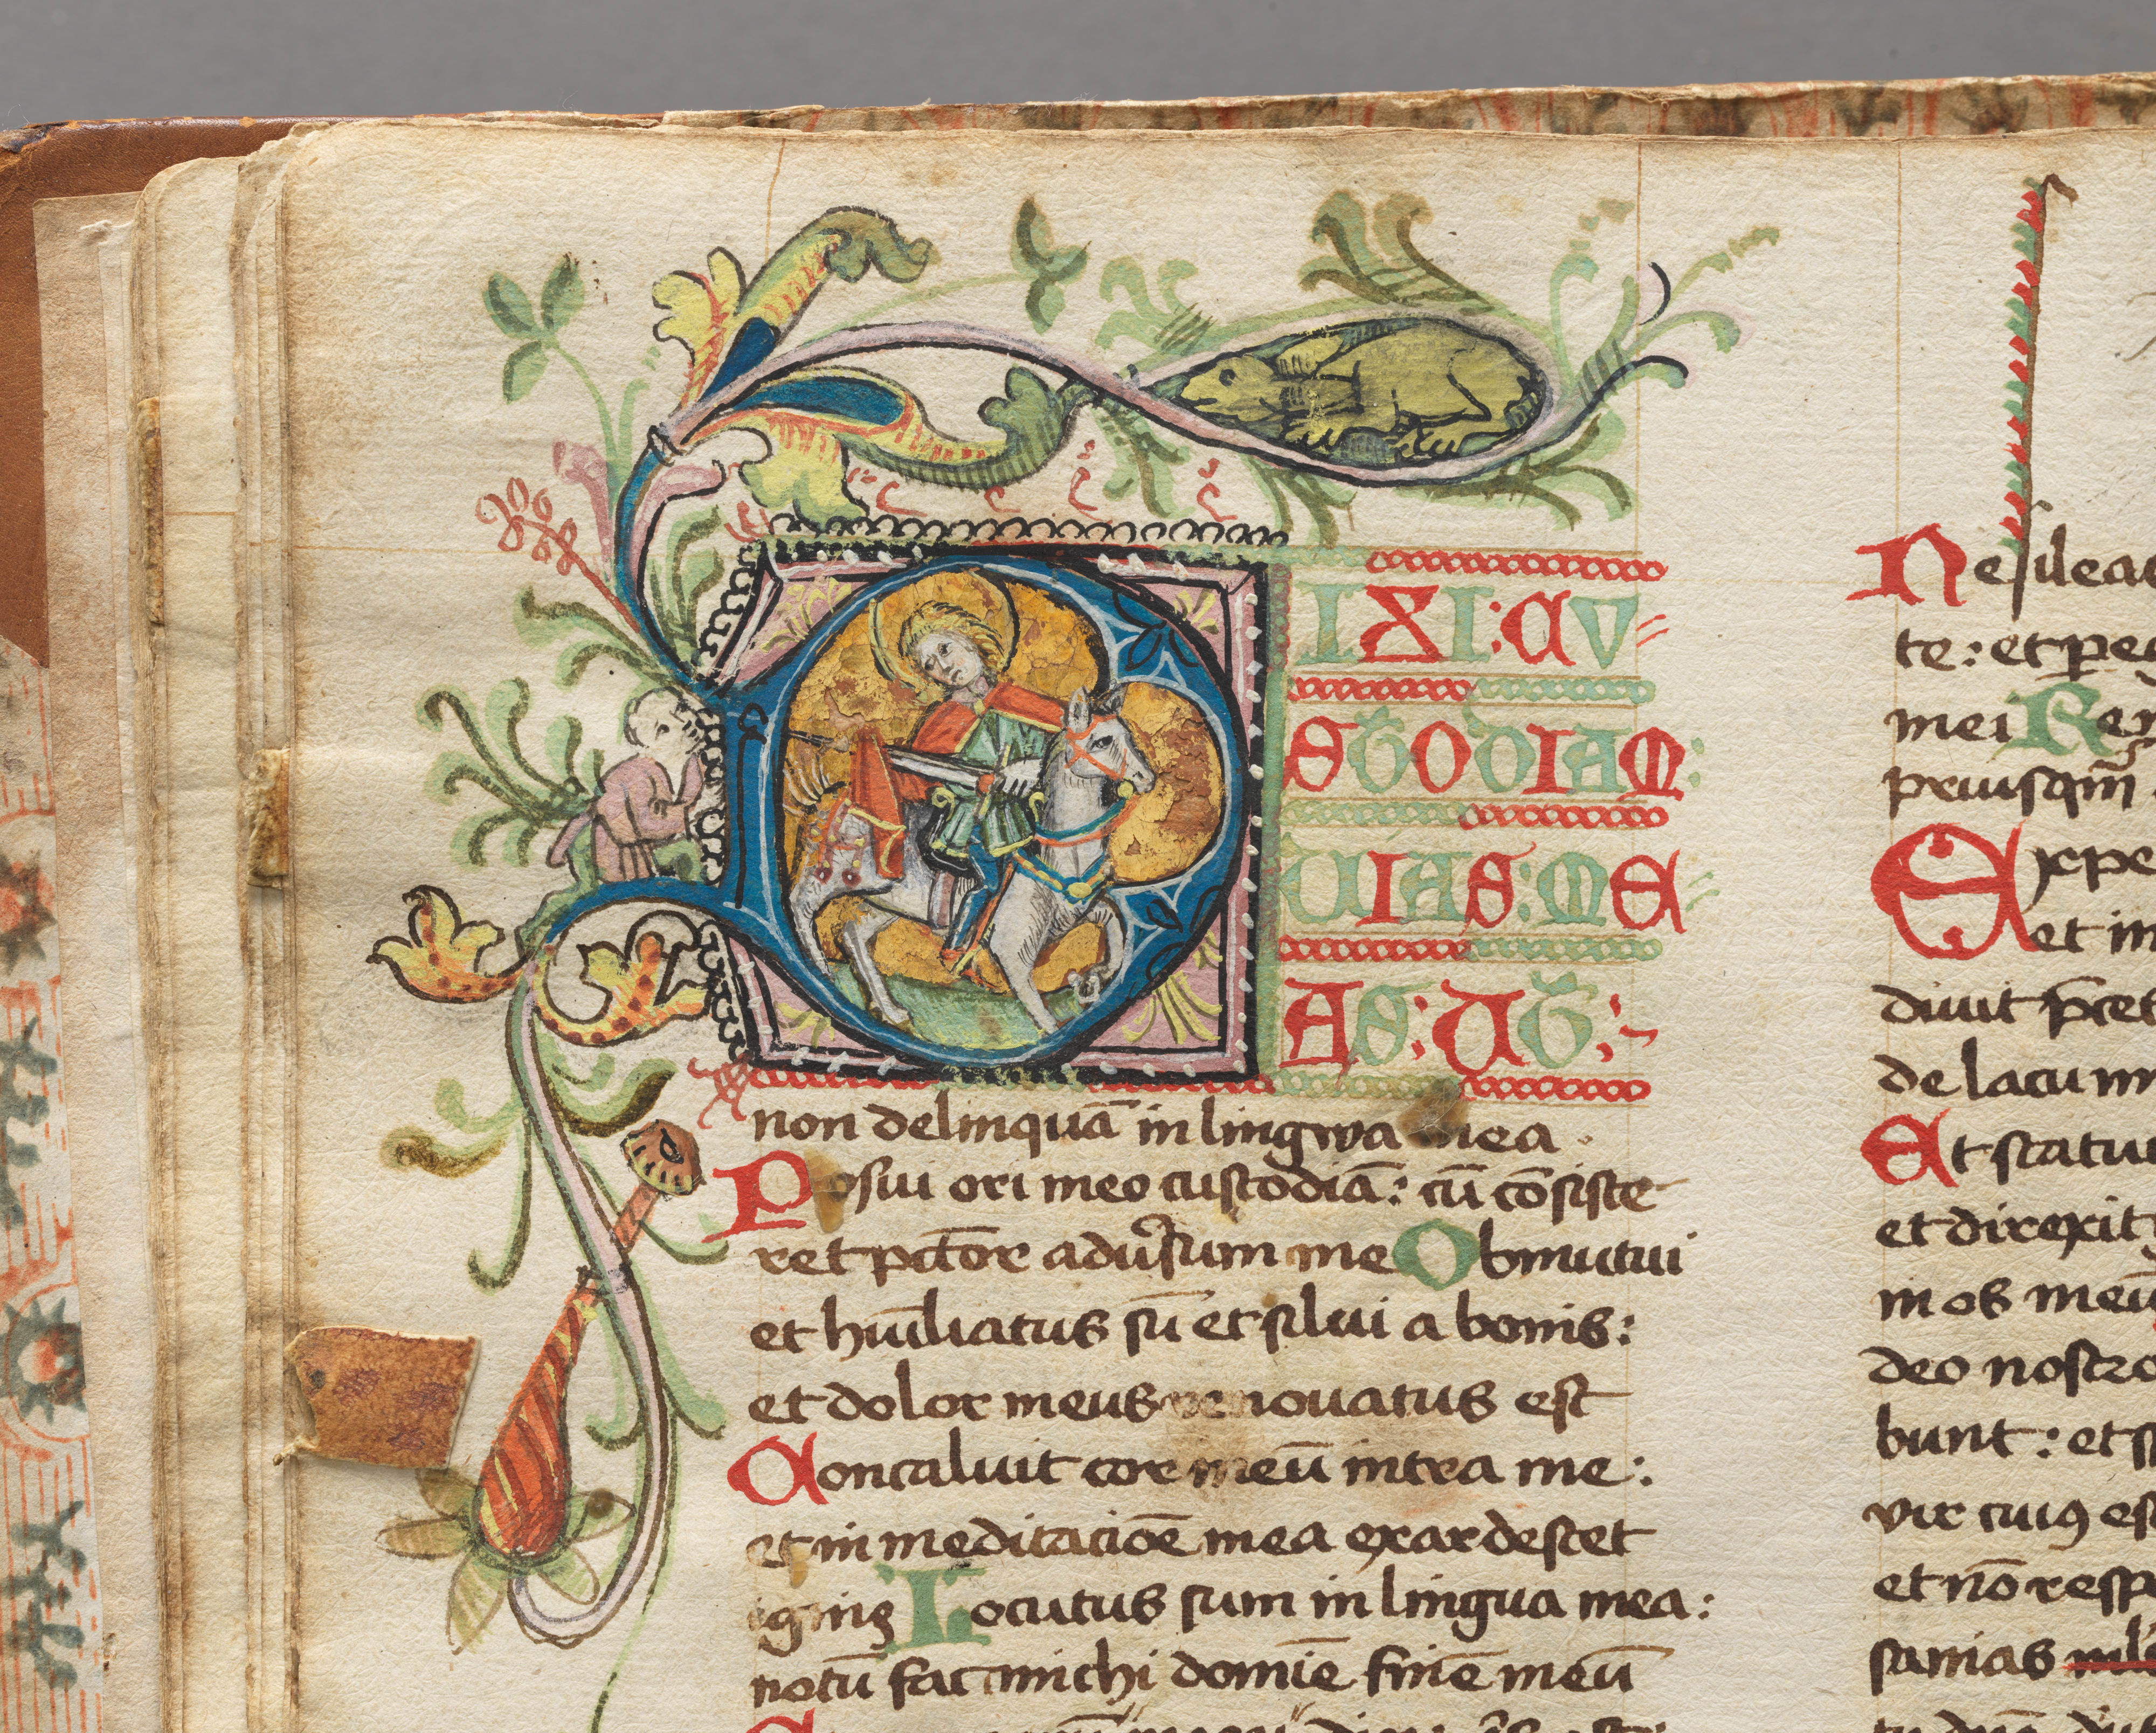 DIXI: CU
STODIAM:
VIAS: ME
AS: UT:
non delinquā in lingwa mea.
Posui ori meo custodiā: cū cōsiste
ret pctōr adūsum me Obmutui
et hūiliatus sū et silui a bonis:
et dolor meus renouatus est
Concaluit cor meū intra me:
et in meditaciōe mea exardescet
ignis Locutus sum in lingua mea:
notū fac michi domīe finē meū
Ne sileas
te: et peg
mei Rem
priusqm̄
Expe
et in
diuit p̄ces
de lacu mi
Et statuit
et direxit
in os meū
deo nostro
bunt: et sp
vir cuiꝰ est
et nō resp
sanias